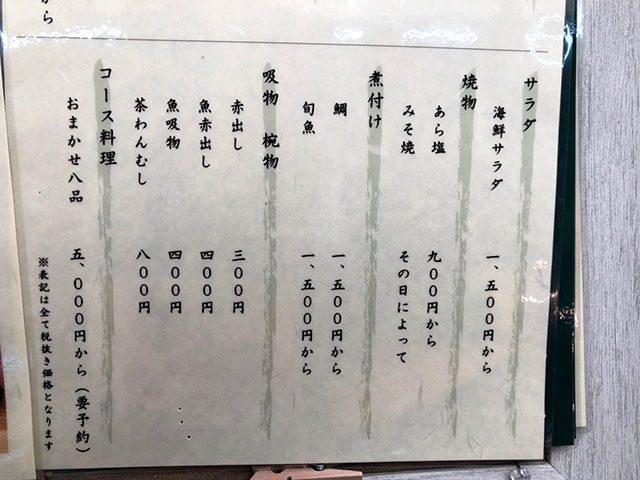 から
サラダ
海鮮サラダ 一、五〇〇円から
焼物
あら塩 九〇〇円から
みそ焼 その日によって
煮付け
鯛 一、五〇〇円から
旬魚 一、五〇〇円から
吸物 椀物
赤出し 三〇〇円
魚赤出し 四〇〇円
魚吸物 四〇〇円
茶わんむし 八〇〇円
コース料理
おまかせ八品 五、〇〇〇円から(要予約)
※表記は全て税抜き価格となります